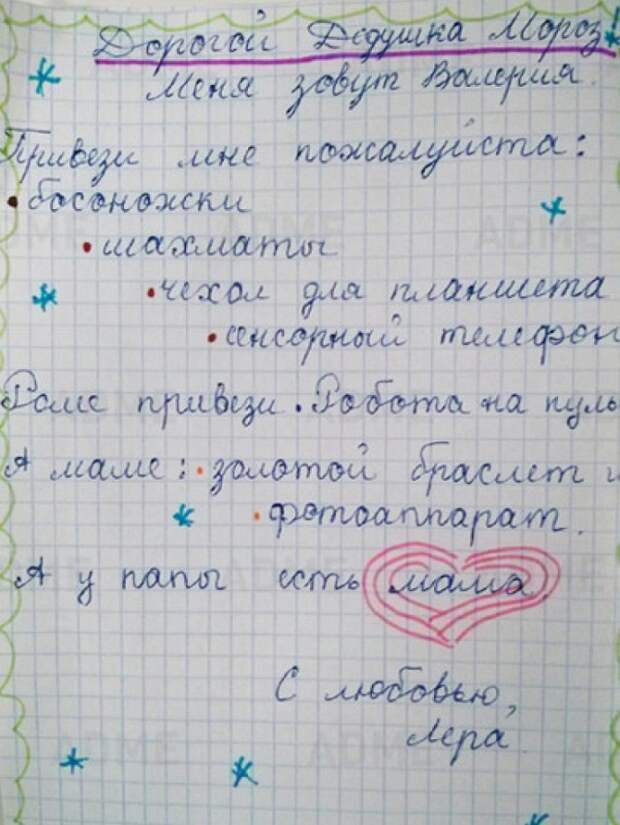 Дорогой Дедушка Мороз!
Меня зовут Валерия.
Привези мне пожалуйста:
• босоножки
• шахматы
• чехол для планшета
• сенсорный телефон
Роме привези • Робота на пуль
А маме: • золотой браслет и
• фотоаппарат.
А у папы есть мама.
С любовью,
Лера